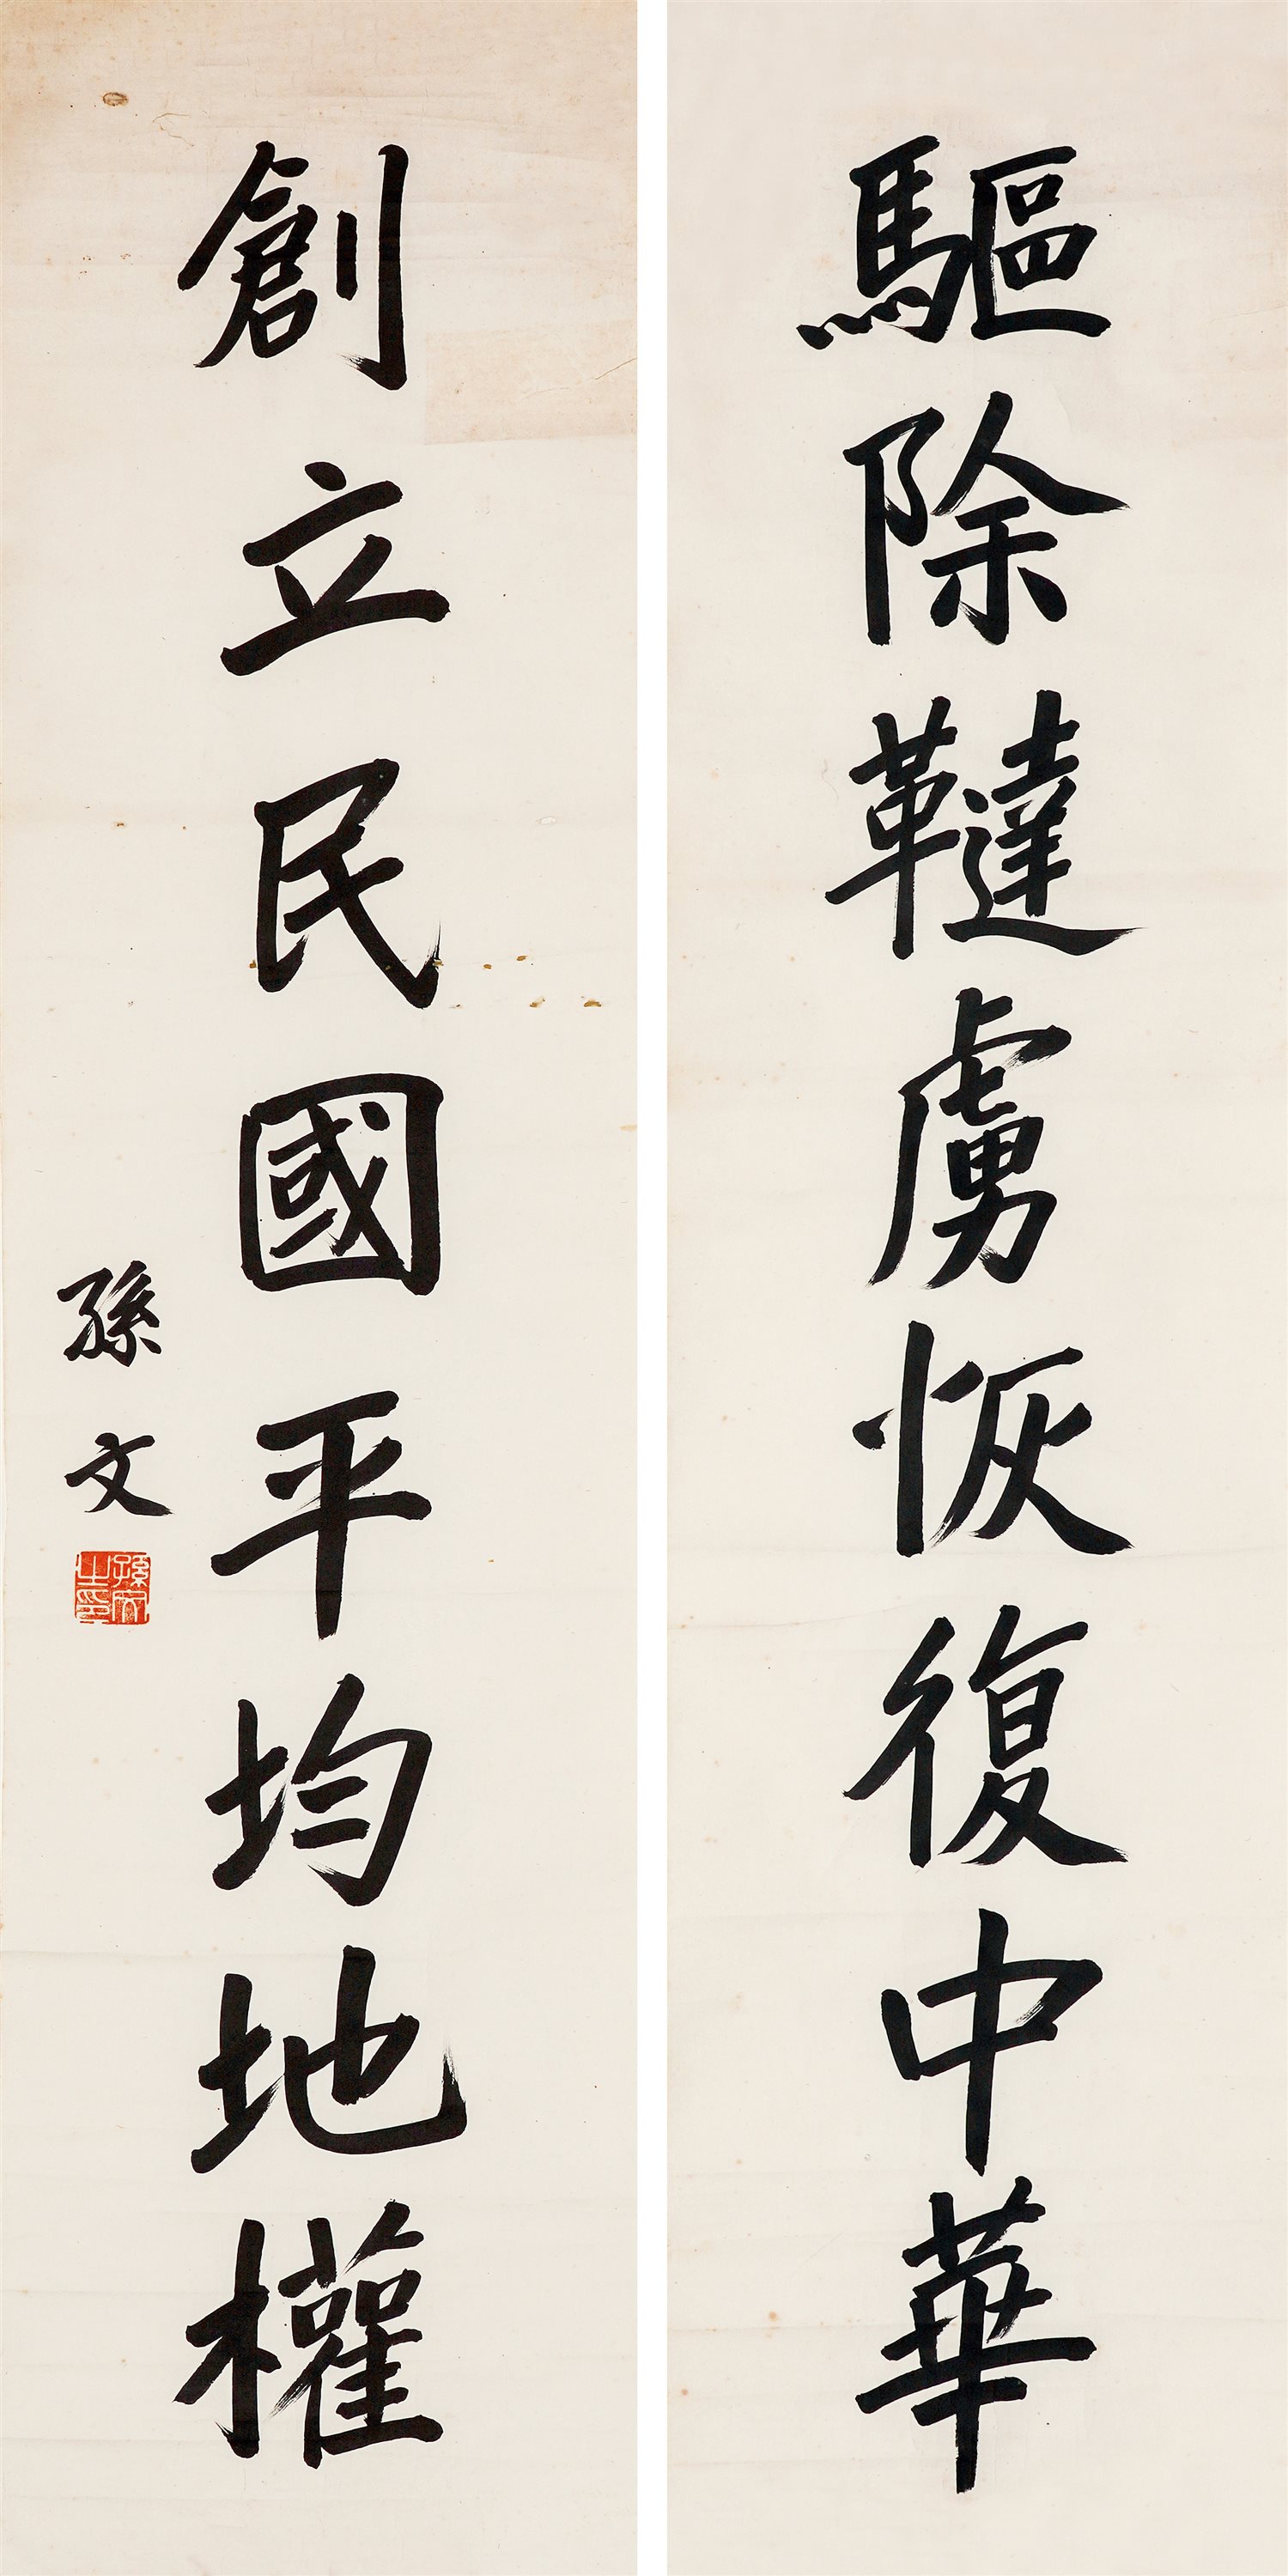 驅除韃虜恢復中華
創立民國平均地權
孫文
孫文之印